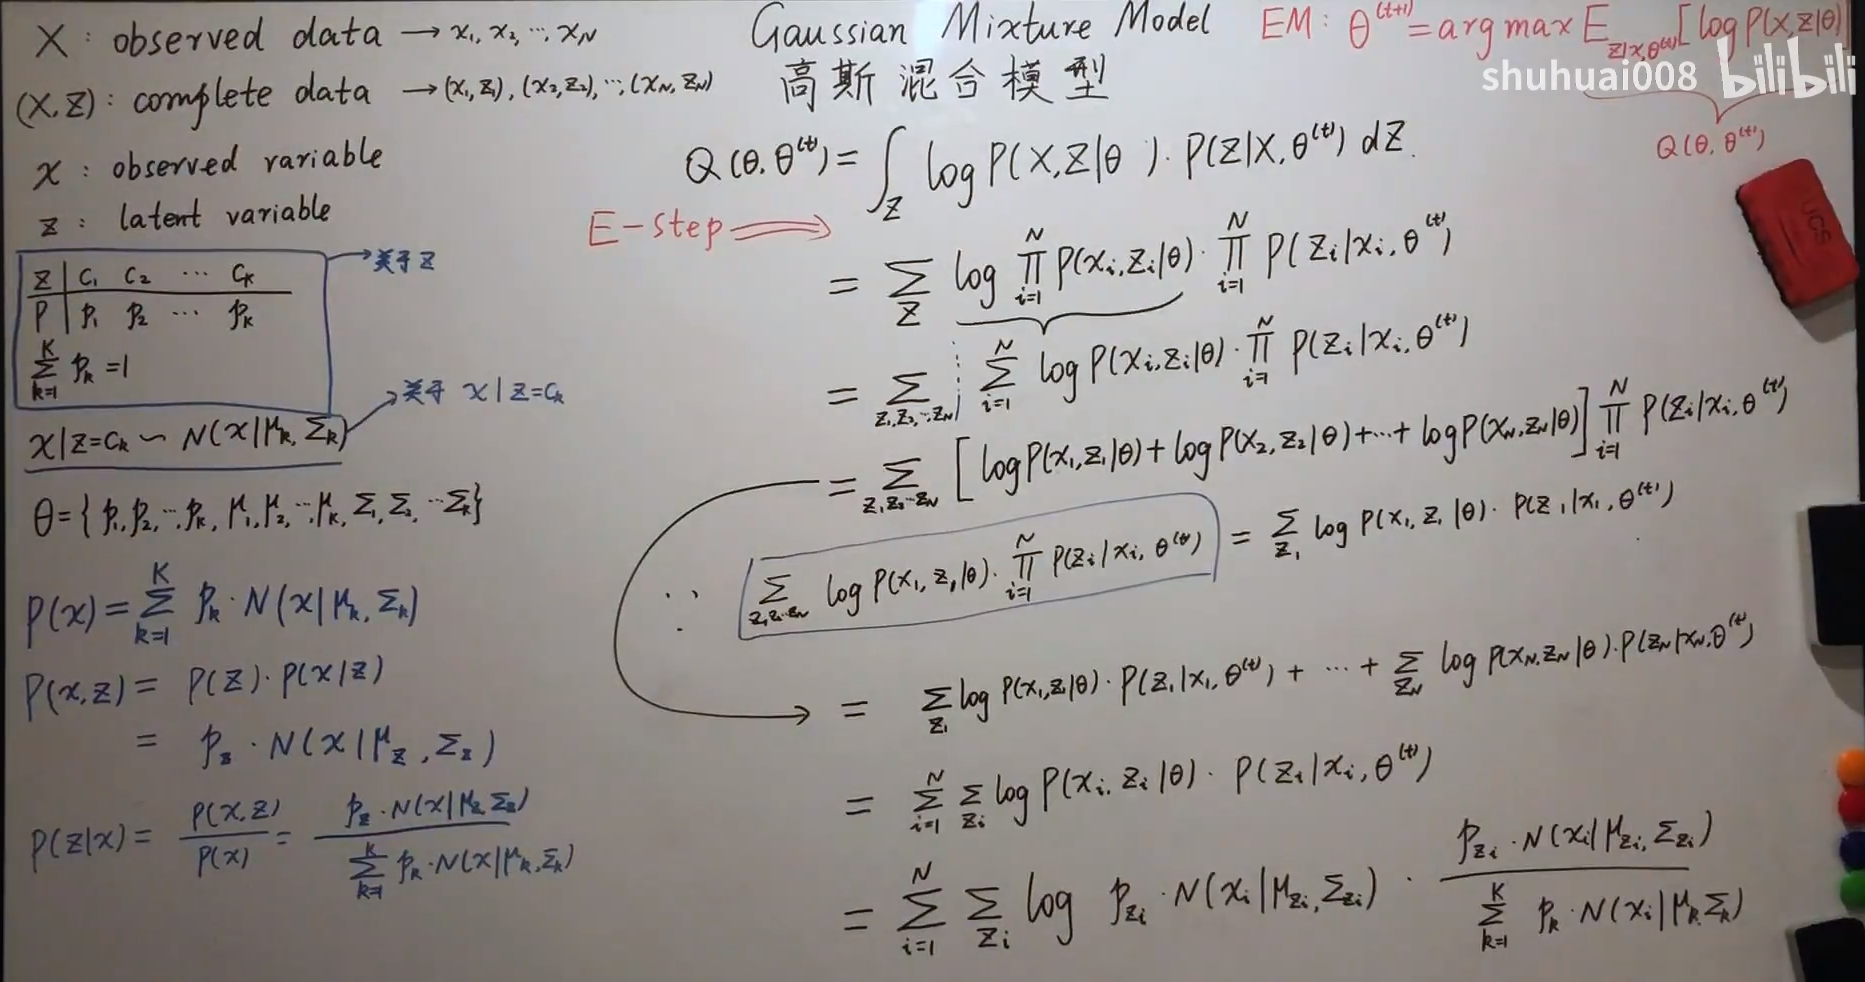 X : observed data → x₁, x₂, ⋯, x_N
(X, Z) : complete data → (x₁, z₁), (x₂, z₂), ⋯, (x_N, z_N)
x : observed rariable
z : latent variable
z | C₁ C₂ ⋯ C_K
P | p₁ p₂ ⋯ p_K
∑_{k=1}^{K} p_k = 1
→ 关于 z
x | z = C_k ∼ N(x | μ_k, Σ_k)
→ 关于 x | z = C_k
θ = { p₁, p₂, ⋯, p_K, μ₁, μ₂, ⋯, μ_K, Σ₁, Σ₂, ⋯ Σ_K }
P(x) = ∑_{k=1}^{K} p_k · N(x | μ_k, Σ_k)
P(x, z) = P(z) · P(x | z)
= p_z · N(x | μ_z, Σ_z)
P(z | x) = P(x, z) / P(x) = p_z · N(x | μ_z, Σ_z) / ∑_{k=1}^{K} p_k · N(x | μ_k, Σ_k)
Gaussian Mixture Model
高斯混合模型
EM : θ^(t+1) = arg max E_{Z|X, θ^(t)} [ log P(X, Z | θ) ]
shuhuai008 bilibili
Q(θ, θ^(t))
Q(θ, θ^(t)) = ∫_Z log P(X, Z | θ) · P(Z | X, θ^(t)) dZ.
E-step ⟹
= ∑_Z log ∏_{i=1}^{N} P(x_i, z_i | θ) · ∏_{i=1}^{N} P(z_i | x_i, θ^(t))
= ∑_{z₁, z₂, ⋯, z_N} ∑_{i=1}^{N} log P(x_i, z_i | θ) · ∏_{i=1}^{N} P(z_i | x_i, θ^(t))
= ∑_{z₁, z₂ ⋯ z_N} [ log P(x₁, z₁ | θ) + log P(x₂, z₂ | θ) + ⋯ + log P(x_N, z_N | θ) ] ∏_{i=1}^{N} P(z_i | x_i, θ^(t))
∵ ∑_{z₁, z₂ ⋯ z_N} log P(x₁, z₁ | θ) · ∏_{i=1}^{N} P(z_i | x_i, θ^(t)) = ∑_{z₁} log P(x₁, z₁ | θ) · P(z₁ | x₁, θ^(t))
= ∑_{z₁} log P(x₁, z₁ | θ) · P(z₁ | x₁, θ^(t)) + ⋯ + ∑_{z_N} log P(x_N, z_N | θ) · P(z_N | x_N, θ^(t))
= ∑_{i=1}^{N} ∑_{z_i} log P(x_i, z_i | θ) · P(z_i | x_i, θ^(t))
= ∑_{i=1}^{N} ∑_{z_i} log p_{z_i} · N(x_i | μ_{z_i}, Σ_{z_i}) · p_{z_i} · N(x_i | μ_{z_i}, Σ_{z_i}) / ∑_{k=1}^{K} p_k · N(x_i | μ_k, Σ_k)
UGS